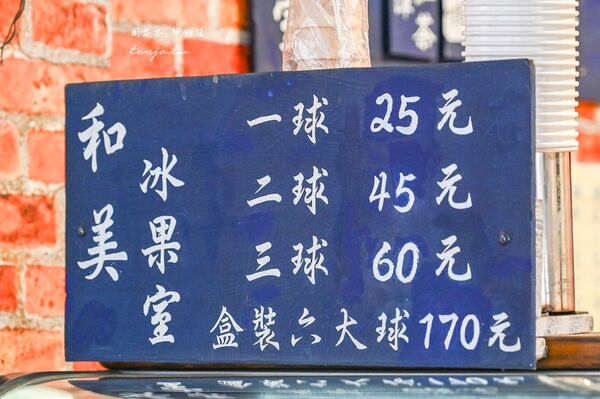 周花花,甲飽沒
tenjo.tw
和美
冰果室
一球 25元
二球 45元
三球 60元
盒裝六大球170元